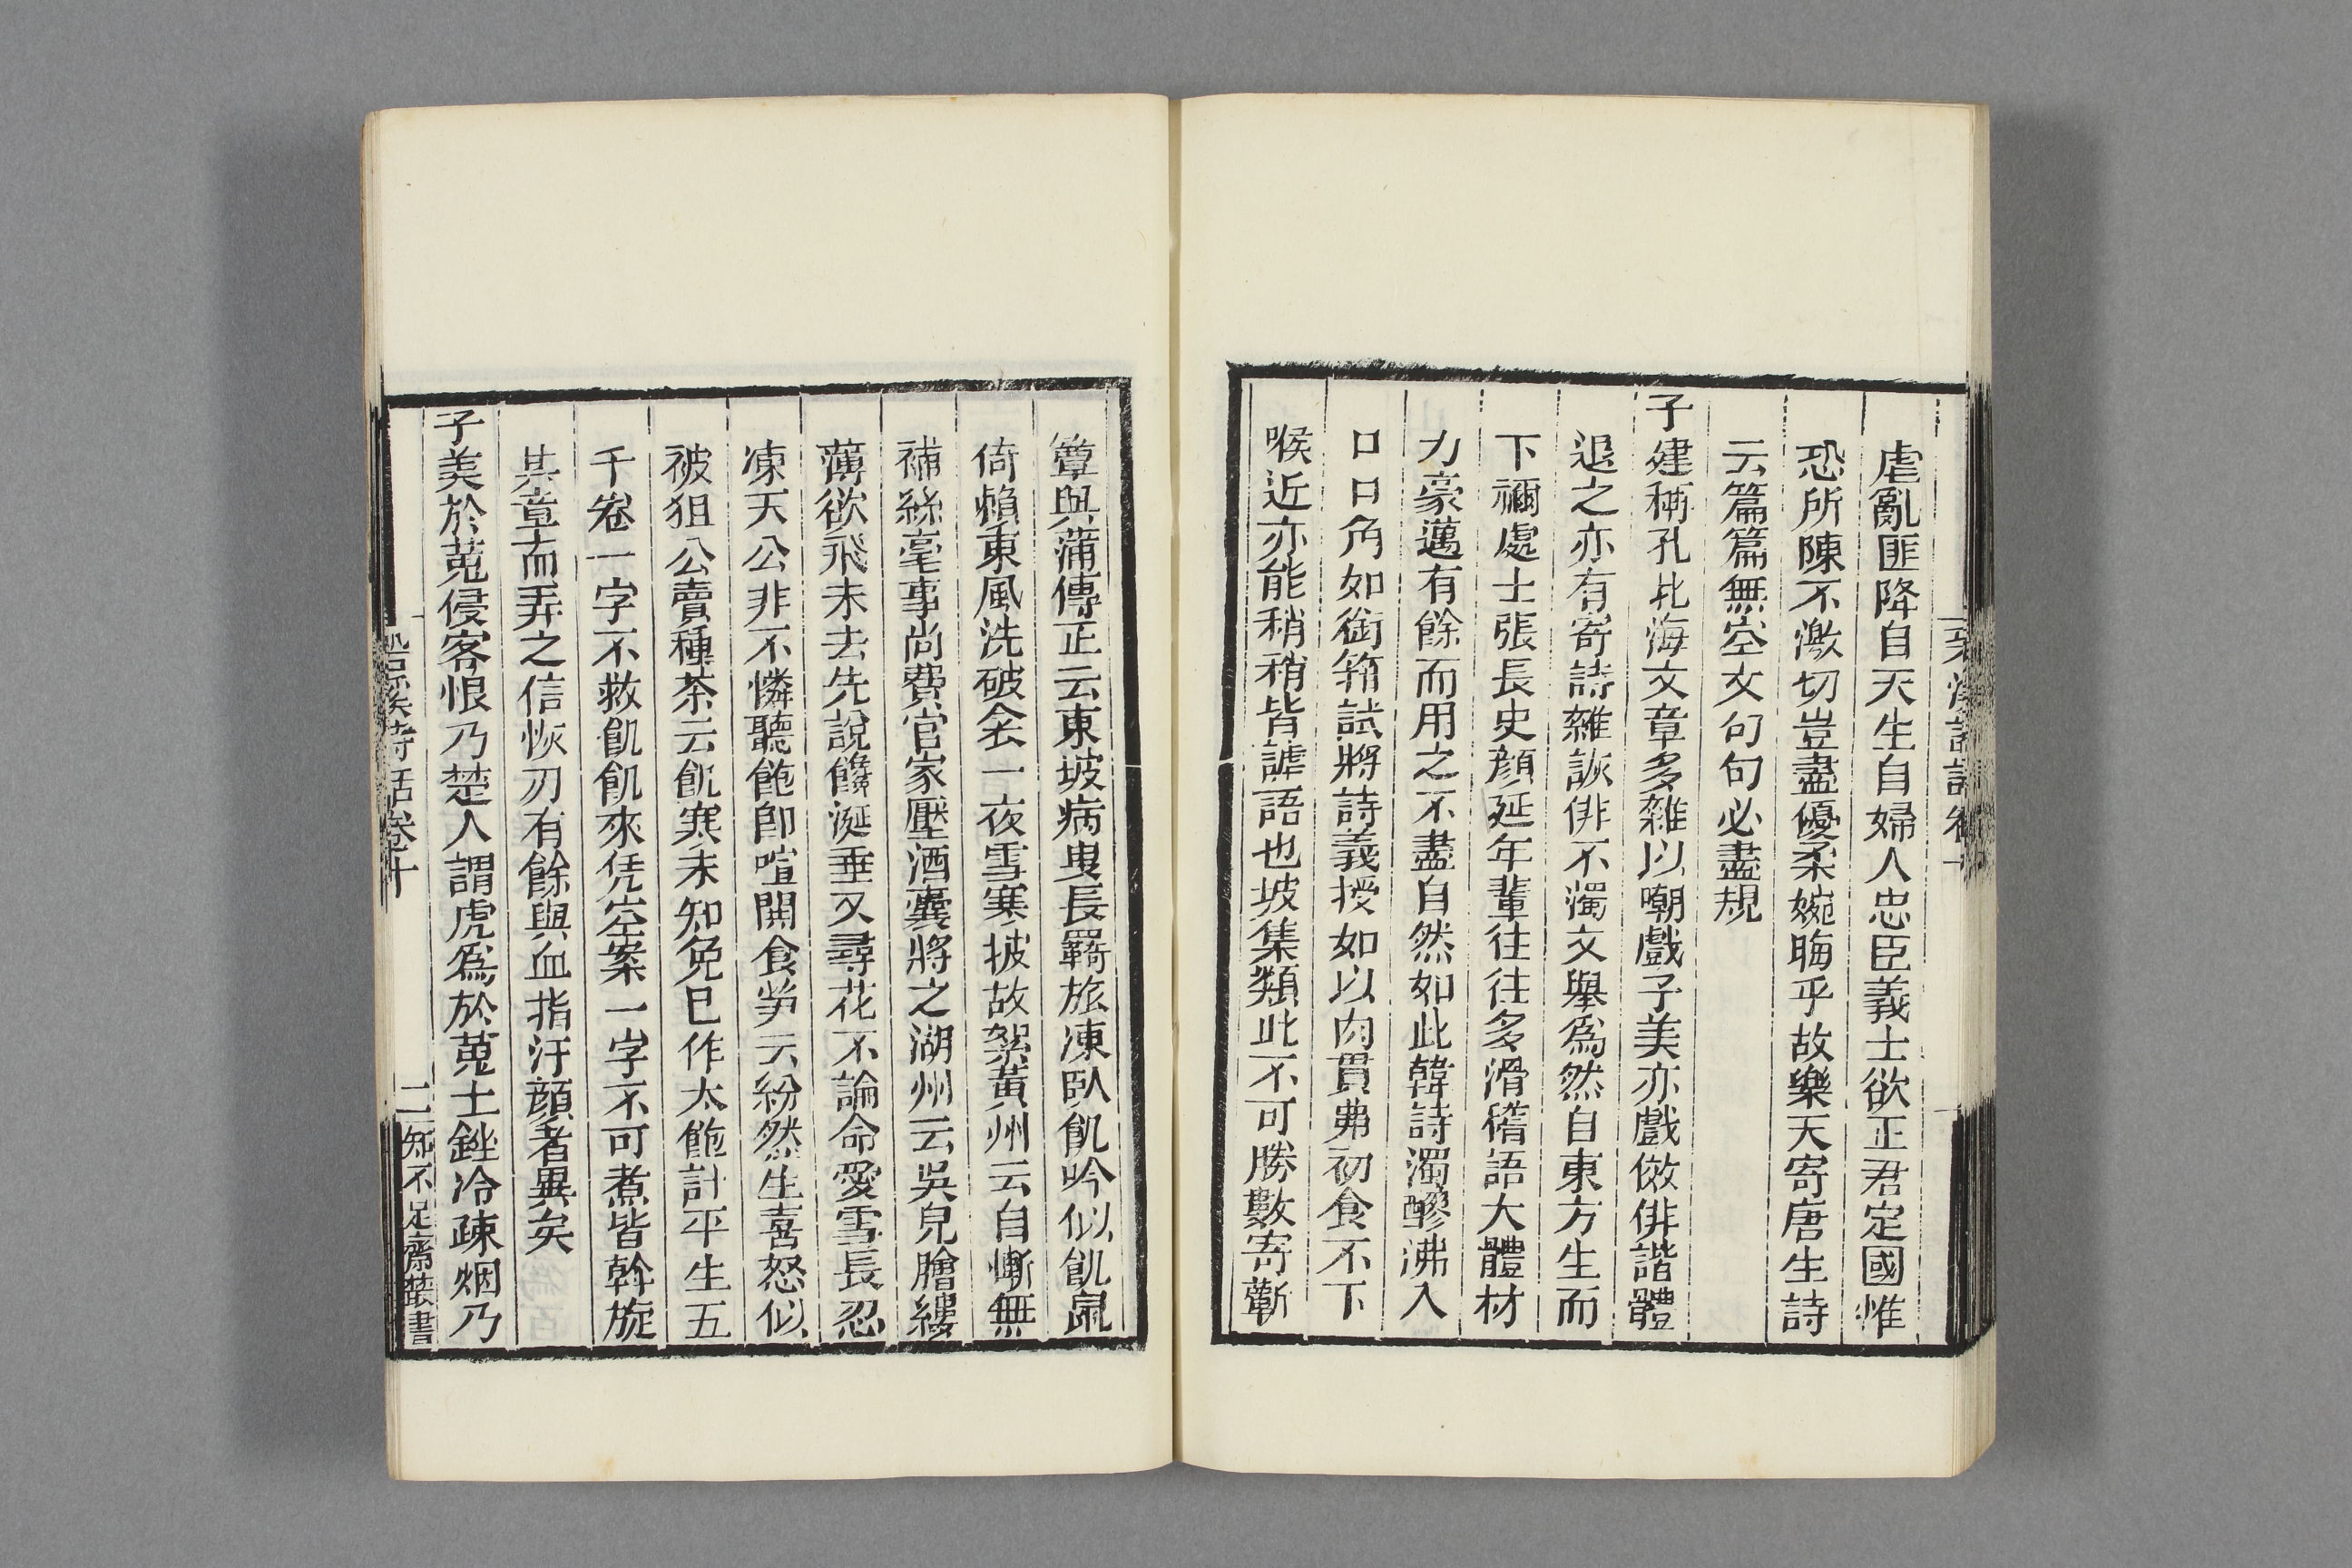 䂬溪詩話卷十
虐亂匪降自天生自婦人忠臣義士欲正君定國惟
恐所陳不激切豈盡優柔婉晦乎故樂天寄唐生詩
云篇篇無空文句句必盡規
子建稱孔北海文章多雜以嘲戲子美亦戲傚俳諧體
退之亦有寄詩雜詼俳不獨文舉為然自東方生而
下禰處士張長史顏延年輩往往多滑稽語大體材
力豪邁有餘而用之不盡自然如此韓詩濁醪沸入
口口角如銜箝試將詩義授如以肉貫弗初食不下
喉近亦能稍稍皆謔語也坡集類此不可勝數寄蘄
簟與蒲傳正云東坡病叟長羇旅凍臥飢吟似飢鼠
倚賴東風洗破衾一夜雪寒披故絮黃州云自慚無
補絲毫事尚費官家壓酒囊將之湖州云吳兒膾縷
薄欲飛未去先說饞涎垂又尋花不論命愛雪長忍
凍天公非不憐聽飽即喧鬨食笋云紛然生喜怒似
被狙公賣種茶云飢寒未知免已作太飽計平生五
千卷一字不救飢飢來凭空案一字不可煮皆斡旋
其章而弄之信恢刃有餘與血指汗顏者異矣
子美於菟侵客恨乃楚人謂虎爲於菟土銼冷疎烟乃
䂬溪詩話卷十
二
知不足齋叢書